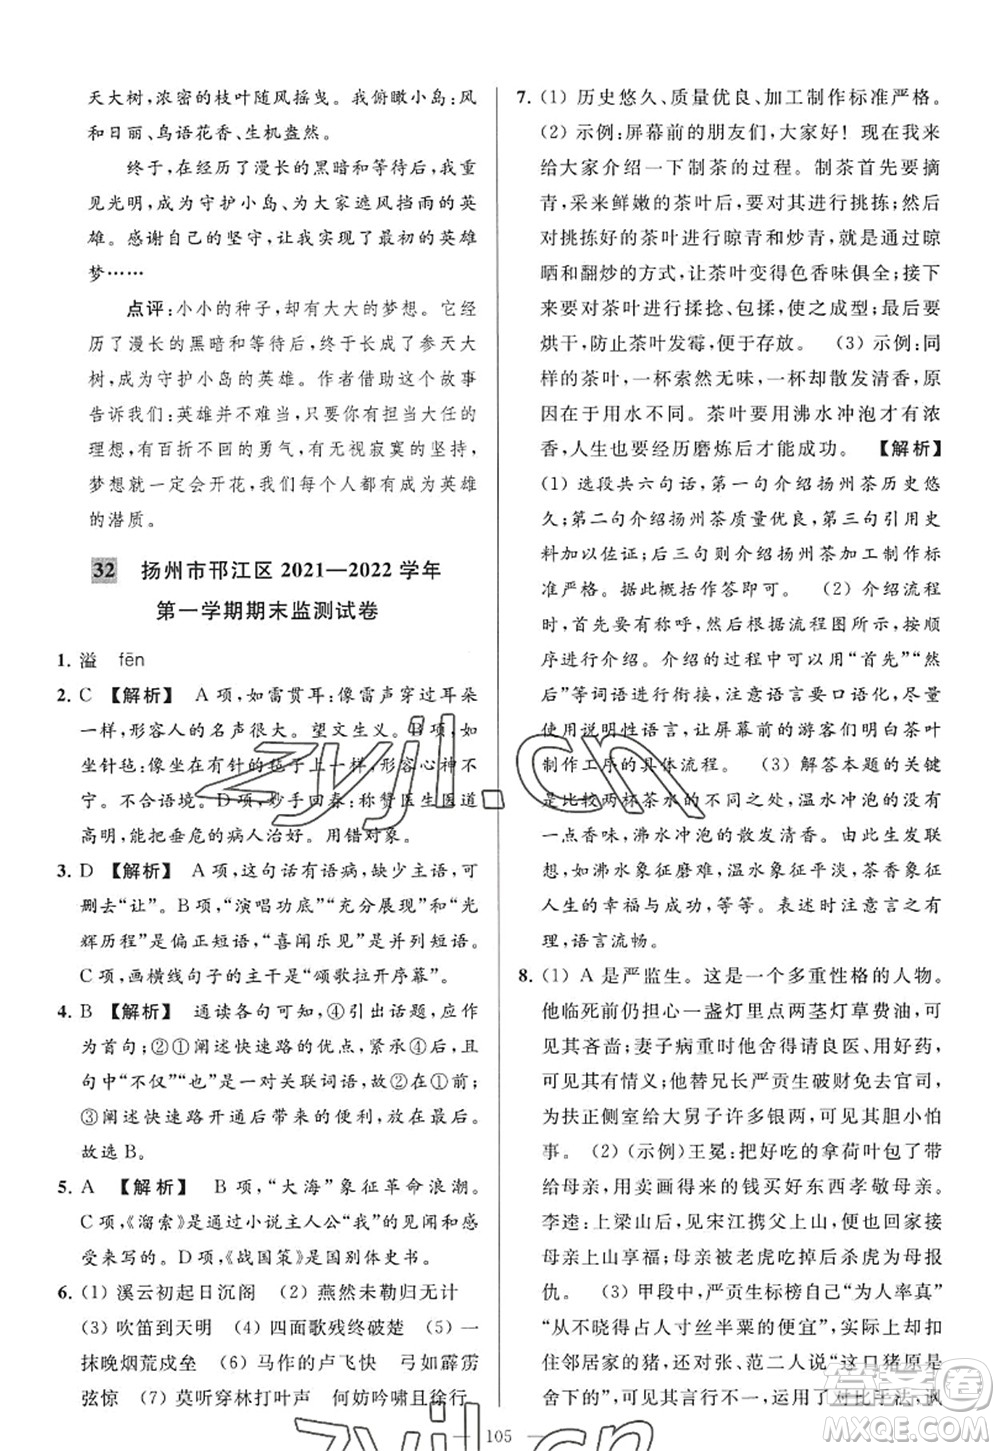 天大树,浓密的枝叶随风摇曳。我俯瞰小岛:风
和日丽、鸟语花香、生机盎然。
终于,在经历了漫长的黑暗和等待后,我重
见光明,成为守护小岛、为大家遮风挡雨的英
雄。感谢自己的坚守,让我实现了最初的英雄
梦……
点评:小小的种子,却有大大的梦想。它经
历了漫长的黑暗和等待后,终于成长为参天大
树,成为守护小岛的英雄。作者通过这个故事
告诉我们:英雄并不难当,只要你有敢于担当的
理想,有百折不回的勇气,有无视寂寞的坚持,
梦想就一定会开花,我们每个人都有成为英雄
的潜质。
32 扬州市邗江区 2021—2022 学年
第一学期期末监测试卷
1. 溢 fēn
2. C 【解析】 A 项,如雷贯耳:像雷声穿过耳朵
一样,形容人的名声很大。望文生义。B项,如
坐针毡:像坐在有针的毡子上一样,形容心神不
宁。不合语境。D 项,妙手回春:称赞医生医道
高明,能把垂危的病人治好。用错对象。
3. D 【解析】 A 项,这句话语言表达有语病,可
删去“让”。B 项,“演唱功底”“充分展现”和“光
辉历程”是偏正短语,“喜闻乐见”是并列短语。
C 项,画横线句子的主干是“颂歌拉开序幕”。
4. B 【解析】 通读各句可知,④点明快速路开
通一事;②①阐述快速路的优点,紧承④,且
句中“不仅”“也”是一对关联词语,故②在①前;
③阐述快速路开通后带来的便利,放在最后。
故选 B。
5. A 【解析】 B 项,“大海”象征革命浪潮。
C 项,《溜索》通过小说主人公“我”的见闻和感
受来写的。D 项,《战国策》是国别体史书。
6. (1) 溪云初起日沉阁 (2) 燕然未勒归无计
(3) 吹笛到天明 (4) 四面歌残终破楚 (5) 一
抹晚烟荒戍垒 (6) 马作的卢飞快 弓如霹雳
弦惊 (7) 莫听穿林打叶声 何妨吟啸且徐行
7. (1) 历史悠久、质量优良、加工制作标准严格。
(2) 示例:屏幕前的朋友们,大家好! 现在我来
给大家介绍一下制茶的过程。制茶首先要摘
青,采来鲜嫩的茶叶后,要对其进行挑拣;然后
对挑拣好的茶叶进行晾青和炒青,通过晾
晒和翻炒的方式,让茶叶变得色香味俱全;接下
来要对茶叶进行揉捻、包揉,使之成型;最后要
烘干,防止茶叶发霉,便于存放。 (3) 示例:同
样的茶叶,一杯索然无味,一杯却散发清香,原因
在于用水不同。茶叶要用沸水冲泡才有浓
香,人生也要经历磨炼后才能成功。 【解析】
(1) 选段共六句话,第一句介绍扬州茶历史悠
久;第二句介绍扬州茶质量优良,第三句引用史
料加以佐证;后三句介绍扬州茶加工制作标准
严格。据此概括作答即可。 (2) 介绍时,
首先要有称呼,然后根据流程图所示,按顺
序进行介绍。介绍时,最好使用“首先”“然
后”等词语进行衔接,注意要口语化,尽量
使用说明性语言,让屏幕前的游客们明白茶叶
制作工序的具体流程。 (3) 解答本题的关键
是比较两杯茶水的不同,温水冲泡的茶叶没有
一点香味,沸水冲泡的散发清香。由此生发联
想,如沸水象征磨难,温水象征平淡,茶香象征
人生的幸福或成功,等等。表述时注意要有条
理,语言流畅。
8. (1) A 是严监生。这是一个多重性格的人物。
他临死前却因一盏灯里点两茎灯草费油,
可见其吝啬;妻子病重时他舍得请良医、用好药,可
见其有情义;他替兄长严贡生破财免去官司,
为扶正侧室给大舅子许多银两,可见其胆小怕
事。 (2) (示例) 王冕:把好吃的拿荷叶包了带
给母亲,把画画赚的钱买好东西孝敬母亲。
李逵:上梁山后,见宋江接父上山,便要回家接
母亲上山享福;母亲被老虎吃掉后,杀虎为母报
仇。 (3) 甲段中,严贡生标榜自己“为人率真”
“从不晓得占人寸丝半粟的便宜”,实际上却关
住邻居家的猪,还对王小二、范二人说“这口猪原是
舍下的”,可见其言行不一,运用了对比手法,讽
— 105 —
zyjl.cn
zyjl.cn
答案圈
MXQE.COM